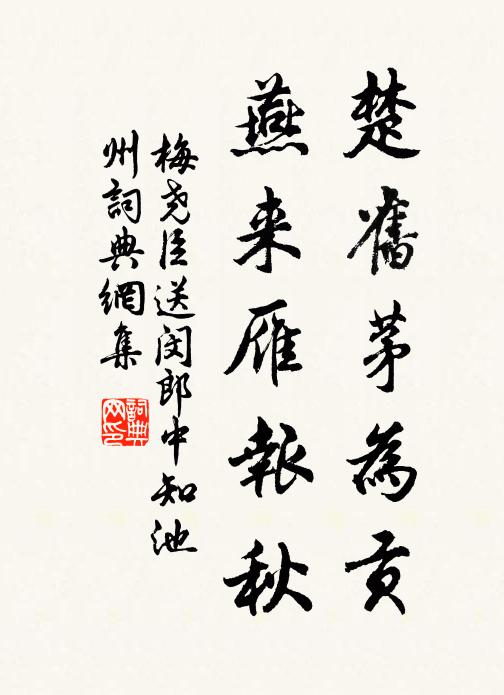 楚舊茅為貢
燕来雁報秋
梅尧臣送闵郎中知池
州詞典網集
詞典
网印